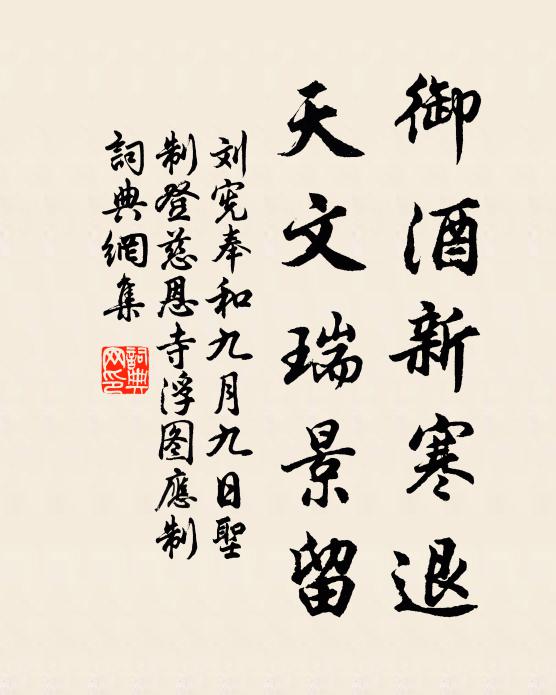 御酒新寒退
天文瑞景留
刘宪奉和九月九日聖
制登慈恩寺浮图應制
詞典網集
詞典网印